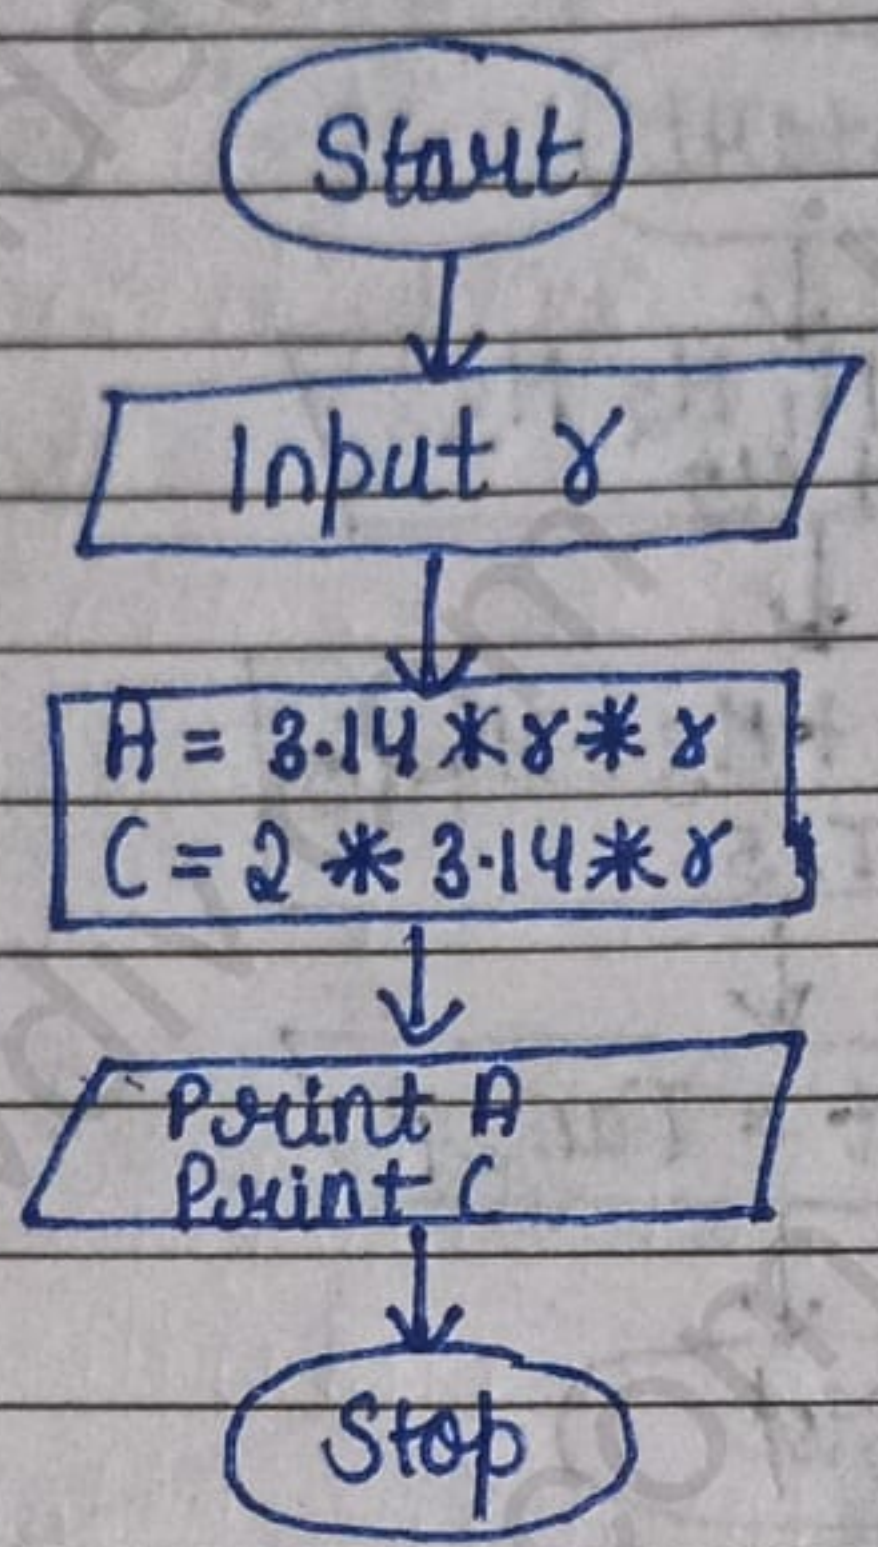 Start
Input r
A = 3.14 * r * r
C = 2 * 3.14 * r
Print A
Print C
Stop